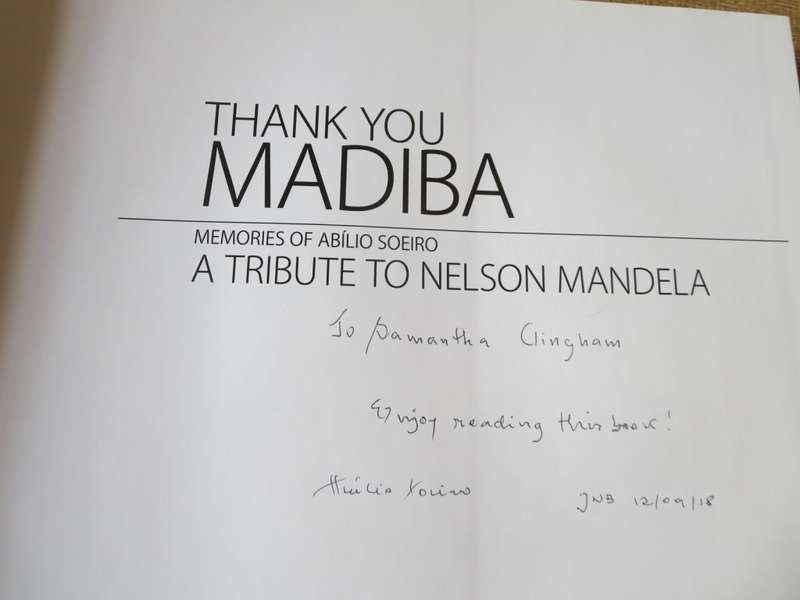 THANK YOU
MADIBA
MEMORIES OF ABÍLIO SOEIRO
A TRIBUTE TO NELSON MANDELA
To Samantha Clingham
Enjoy reading this book!
Abílio Soeiro JNB 12/09/18